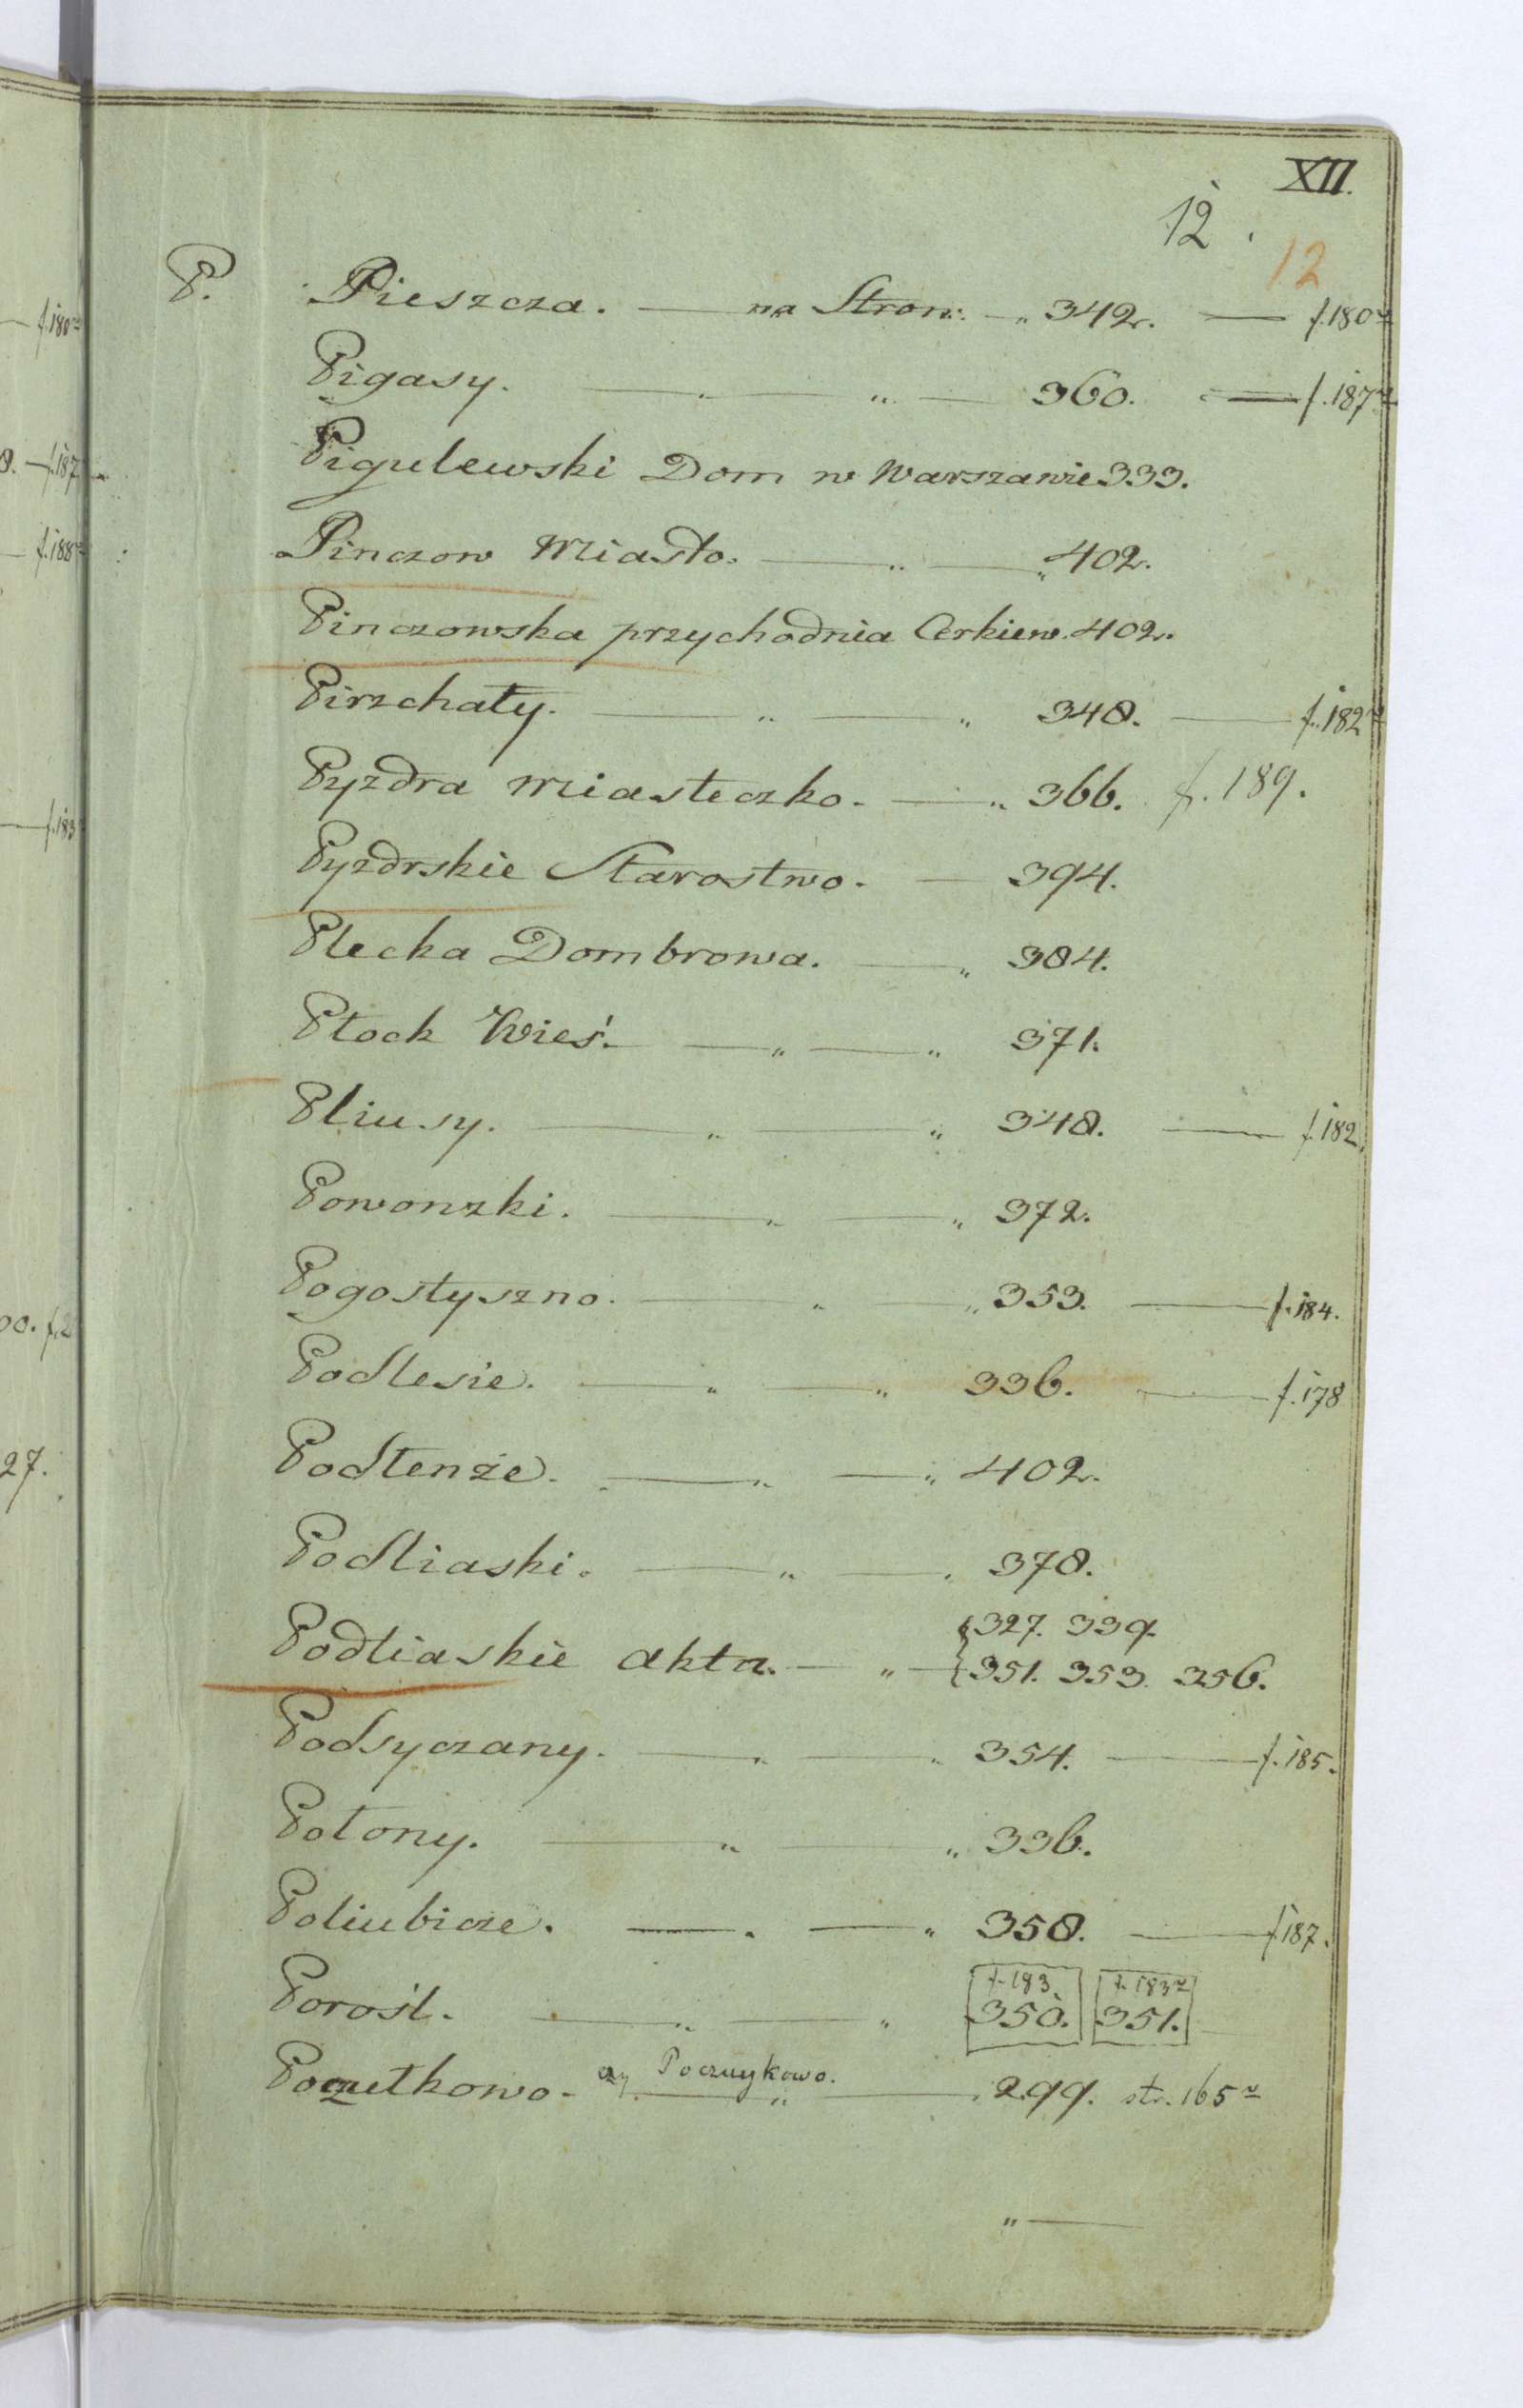 XII.
12.
12
P. Pieszcza. — na Stron: — „ 342. — f.180v
Pigasy. — „ — „ — 360. — f.187v
Pigulewski Dom w Warszawie 333.
Pinczow Miasto. — „ — „ 402.
Pinczowska przychodnia Cerkiew. 402.
Pirzchały. — „ — „ 348. — f.182v
Pyzdra Miasteczko. — „ 366. f. 189.
Pyzdrskie Starostwo. — 394.
Plecka Dombrowa. — „ 384.
Płock Wieś. — „ — „ 371.
Pliusy. — „ — „ 348. — f.182.
Powonzki. — „ — „ 372.
Pogostyszno. — „ — „ 353. — f.184.
Podlesie. — „ — „ 336. — f.178
Podłenże. — „ — „ 402.
Podliaski. — „ — „ 378.
Podliaskie akta. — „ — {327. 339.
351. 353. 356.
Podsyczany. — „ — „ 354. — f.185.
Połony. — „ — „ 336.
Poliubicze. — „ — „ 358. — f187.
f.183 f.183v
Porośl. — „ — „ 350. 351.
Poczutkowo. czy Poczuykowo. — „ — 299. str. 165v
„ —
f.180v
8. — f.187
— f.188v
— f.183
00. f.2
27.